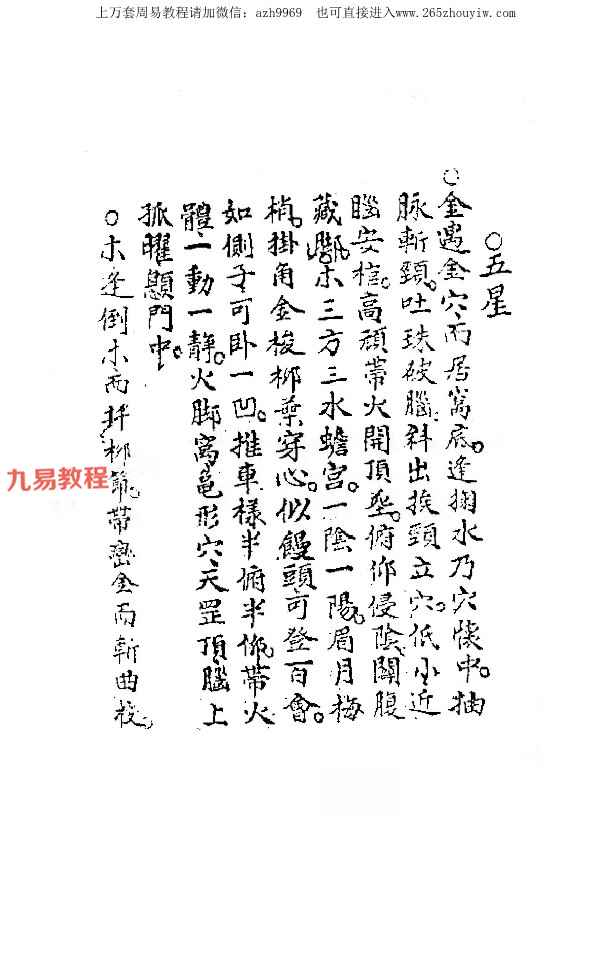 上万套周易教程请加微信：azh9969 也可直接进入www.265zhouyiw.com
○五星
○金遇金穴穴而居窩底。逢掬水乃穴懷中。抽
脉斬頸。吐珠破腦。斜出挨頸立穴。低小近
腦安棺。高頑帶火開頂坐。俯仰侵陰關腹
藏 木三方三水蟾宫。一陰一陽。眉月梅
梢。掛角金梭柳葉穿心。似饅頭可登百會。
如側子可卧一凹。推車樣半俯半仰。帶火
體一動一静。火脚窩龜形穴天罡頂腦上
孤曜懸門中。
○木逢倒木而 柳 帶巒金而斬曲
九易教程